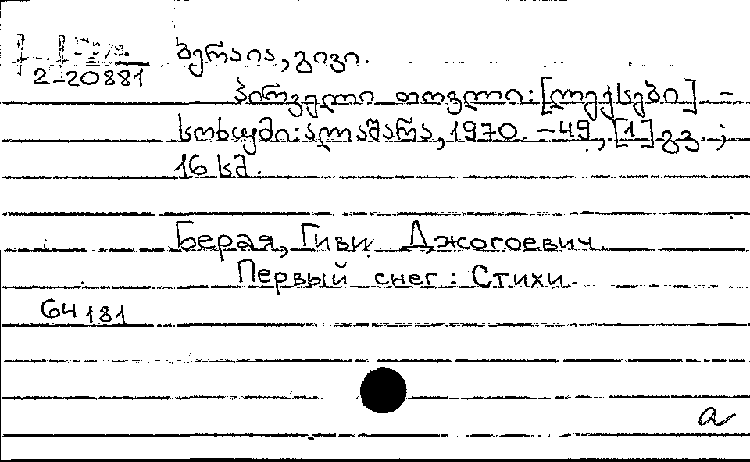 ბერაია, გივი.
2-20881
პირველი თოვლი: [ლექსები] -
სოხუმი: ალაშარა, 1970. - 49, [1] გვ.;
16 სმ.
Берая, Гиви Джогоевич.
Первый снег: Стихи.
64181
a